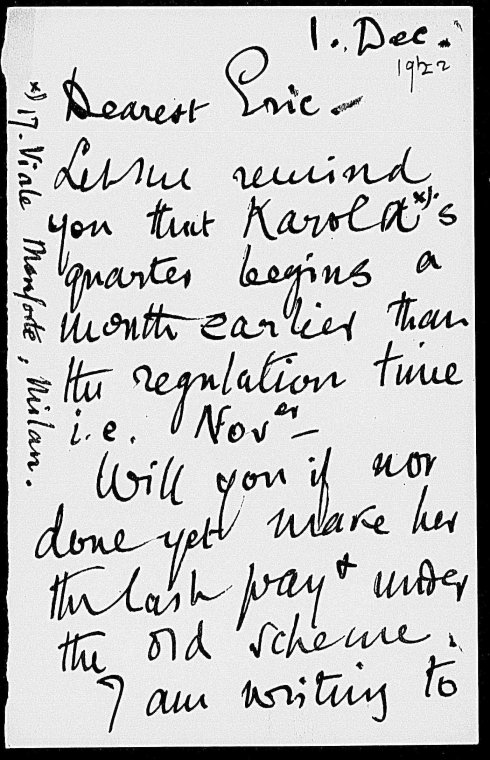 1. Dec.
1922
Dearest Eric –
Let me remind
you that Karola *)'s
quarter begins a
month earlier than
the regulation time
i.e. Nov er –
Will you if not
done yet make her
the last pay t under
the old scheme.
I am writing to
*) 17. Viale Monforte, Milan.